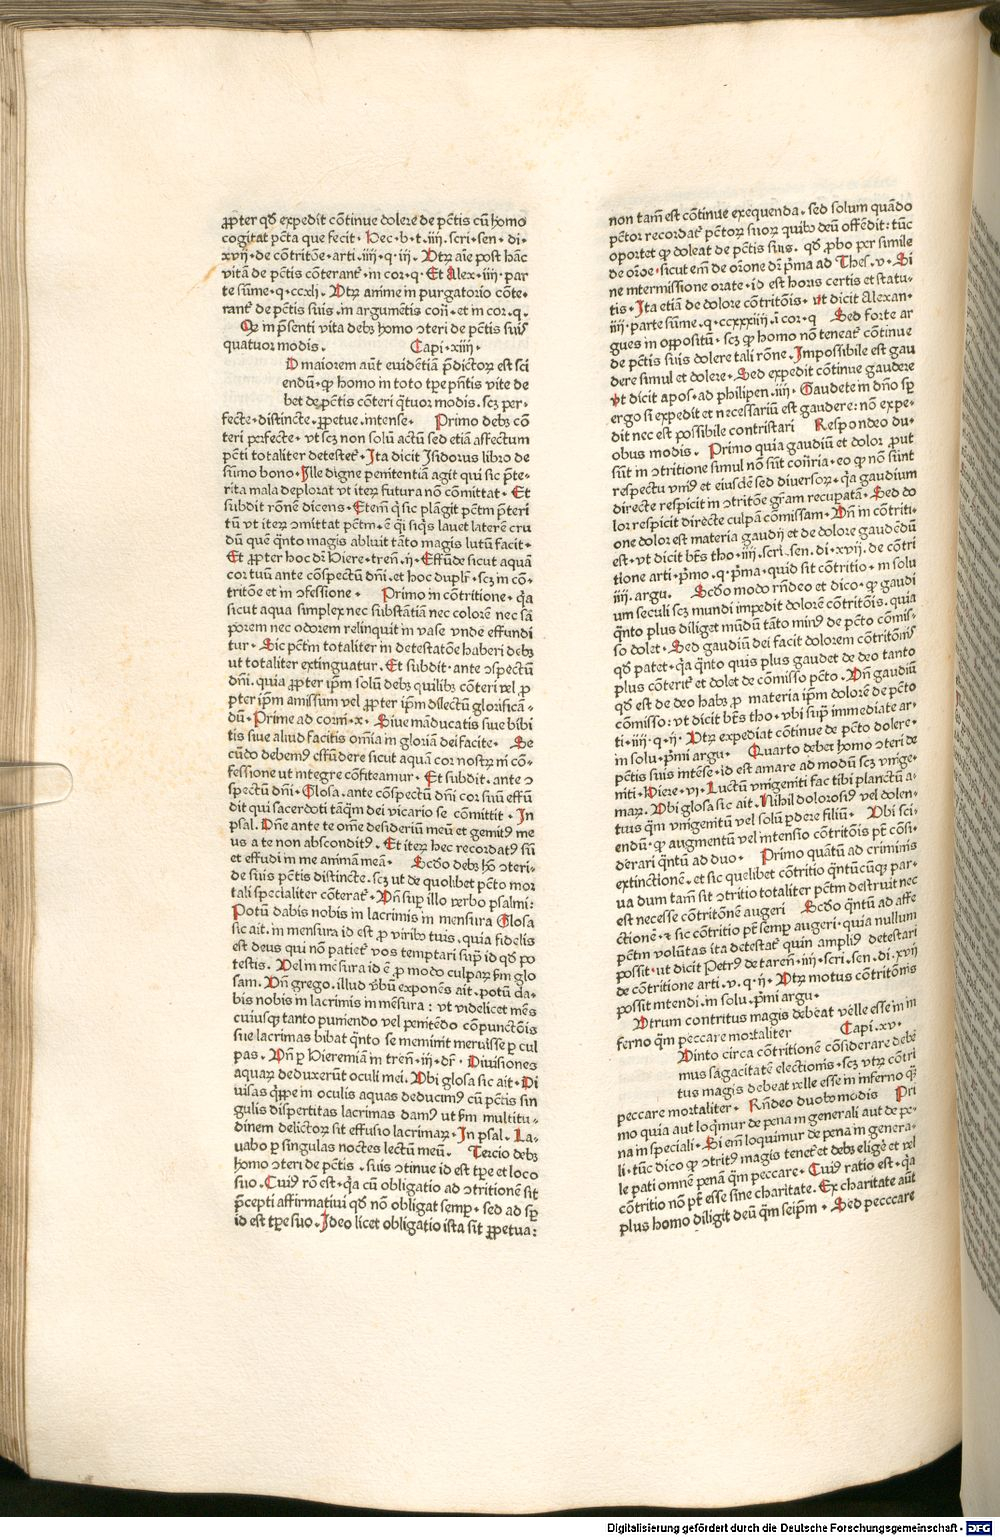 ꝓpter qđ expedit cōtinue dolere de pc̄tis cū homo
cogitat pc̄ta que fecit. Hec .b.t.iiij. scri. sen. di.
xvij. de cōtritōe. arti. iiij. q. iij. Vtꝝ aīe post hāc
vitā de pc̄tis cōteranť. in cor. q. Et Alex. iiij. par
te sūme. q. ccxlj. Vtꝝ anime in purgatorio cōte-
ranť de pc̄tis suis. in argumētis coñ. et in cor. q.
Qꝙ in p̄senti vita debꝫ homo ↄteri de pc̄tis suis
quatuor modis. Capi. xiiij.
D maiorem aūt euidētiā p̄dictoꝝ est sci
endū. ꝙ homo in toto tꝑe pn̄tis vite de
bet de pc̄tis cōteri q̄tuor modis. scꝫ per-
fecte. distincte. ꝑpetue. intense. Primo debꝫ cō
teri perfecte. vt scꝫ non solū actū sed etiā affectum
pc̄ti totaliter detesteť. Ita dicit Isidorus libro de
sūmo bono. Ille digne penitentiā agit qui sic p̄te-
rita mala deplorat vt iteꝝ futura nō cōmittat. Et
subdit rōnē dicens. Etem̄ q̄ sic plāgit pctm̄ p̄teri
tū vt iteꝝ ↄmittat pctm̄. ē q̄si siq̄s lauet laterē cru
dū quē q̄nto magis abluit tāto magis lutū facit.
Et ꝓpter hoc dr̄ Hiere. tren̄. ij. Effūde sicut aquā
cor tuū ante cōspectū dn̄i. et hoc duplr̄. scꝫ in cō-
tritōe et in ↄfessione. Primo in contritione. q̄a
sicut aqua simplex nec substātiā nec colorē nec sā
porem nec odorem relinquit in vase vnde effundi
tur. Sic pctm̄ totaliter in detestatōe haberi debꝫ
ut totaliter extinguatur. Et subdit. ante ↄspectū
dn̄i. quia ꝓpter ip̄m solū debꝫ quilibꝫ cōteri vel ꝓ
pter ip̄m amissum vel ꝓpter ip̄m dilectū glorificā-
dū. Prime ad corin̄. x. Siue māducatis siue bibi
tis siue aliud facitis om̄ia in gloriā dei facite. Se
cūdo debemꝰ effūdere sicut aquā cor nostꝝ in cō-
fessione ut integre cōfiteamur. Et subdit. ante ↄ
spectū dn̄i. Glosa. ante cōspectū dn̄i cor suū effū
dit qui sacerdoti tāq̄m dei vicario se cōmittit. In
psal. Dn̄e ante te om̄e desideriū meū et gemitꝰ me
us a te non absconditꝰ. Et iteꝝ hec recordatꝰ sū
et effudi in me animā meā. Scd̄o debꝫ hō ↄteri-
de suis pc̄tis distincte. scꝫ ut de quolibet pc̄to mor
tali specialiter cōterať. Vn̄ suꝑ illo verbo psalmi:
Potū dabis nobis in lacrimis in mensura Glosa
sic ait. in mensura id est ꝓ viribꝰ tuis. quia fidelis
est deus qui nō patieť vos temptari sup̄ id qđ po
testis. Vel in mēsura id ē ꝓ modo culpaꝝ s̄m glo
sam. Vn̄ grego. illud v̄bū exponēs ait. potū da-
bis nobis in lacrimis in mēsura: vt videlicet mēs
cuiusqꝫ tanto puniendo vel penitēdo cōpunctōis
sue lacrimas bibat q̄nto se meminit meruisse ꝑ cul
pas. Vn̄ ꝑ Hieremiā in tren̄. iij. dr̄. Diuisiones
aquaꝝ deduxerūt oculi mei. Vbi glosa sic ait. Di
uisas q̄ꝑpe in oculis aquas deducimꝰ cū pc̄tis sin
gulis dispertitas lacrimas damꝰ ut s̄m multitu-
dinem delictoꝝ sit effusio lacrimaꝝ. In psal. La-
uabo ꝑ singulas noctes lectū meū. Tercio debꝫ
homo ↄteri de pc̄tis. suis ↄtinue id est tꝑe et loco
suo. Cuiꝰ rō est. q̄a cū obligatio ad ↄtritionē sit
p̄cepti affirmatiui qđ nō obligat semꝑ. sed ad sꝑ
id est tꝑe suo. Ideo licet obligatio ista sit ꝑpetua:
non tam̄ est cōtinue exequenda. sed solum quādo
pc̄tor recordať pc̄toꝝ suoꝝ quibꝰ deū offēdit: tūc
oportet ꝙ doleat de pc̄tis suis. qđ ꝓbo per simile
de ōrōe. sicut em̄ de orōne dr̄ p̄ma ad Thes. v. Si
ne intermissione orate. id est horis certis et statu-
tis. Ita etiā de dolore cōtritōis. ut dicit Alexan.
iiij. parte sūme. q. ccxxxiiij. ī cor. q Sed forte ar
gues in oppositū. scꝫ ꝙ homo nō teneať cōtinue
de pc̄tis suis dolere tali rōne. Impossibile est gau
dere simul et dolere. Sed expedit cōtinue gaudere
vt dicit apos. ad philipen. iiij. Gaudete in dn̄o sꝑ
ergo si expedit et necessariū est gaudere: nō expe-
dit nec est possibile contristari Respondeo du-
obus modis. Primo quia gaudiū et dolor ꝓut
sūt in ↄtritione simul nō sūt con̄ria. eo ꝙ nō sūnt
respectu vniꝰ et eiusdē sed diuersoꝝ. q̄a gaudium
directe respicit in ↄtritōe gr̄am recuꝑatā. Sed do
lor respicit directe culpā cōmissam. Vn̄ in cōtriti-
one dolor est materia gaudij et de dolore gaudēdū
est. vt dicit bt̄s tho. iiij. scri. sen. di. xvij. de cōtri
tione arti. p̄mo. q. p̄ma. quid sit cōtritio. in solu
iiij. argu. Scd̄o modo rn̄deo et dico. ꝙ gaudi
um seculi scꝫ mundi impedit dolorē cōtritōis. quia
q̄nto plus diligeť mūdū tāto minꝰ de pc̄to cōmis-
so dolet. Sed gaudiū dei facit dolorem cōtritōnis
qđ patet. q̄a q̄nto quis plus gaudet de deo tanto
plus cōteriť et dolet de cōmisso pc̄to. Vn̄ gaudiū
qđ est de deo habꝫ ꝓ materia ip̄m dolorē de pc̄to
cōmisso: vt dicit bt̄s tho. vbi sup̄ immediate ar-
ti. iiij. q. ij. Vtꝝ expediat cōtinue de pc̄to dolere.
in solu. p̄mi argu. Quarto debet homo ↄteri de
pc̄tis suis intēse. id est amare ad modū scꝫ vnige-
niti. Hiere. vi. Luctū vnigeniti fac tibi planctū a-
maꝝ. Vbi glosa sic ait. Nihil dolorosiꝰ vel dolen-
tius q̄m vnigenitū vel solū ꝑdere filiū. Vbi sci-
endū. ꝙ augmentū vel intensio cōtritōis pt̄ cōsi-
derari q̄ntū ad duo. Primo quātū ad criminis
extinctionē. et sic quelibet cōtritio q̄ntūcūqꝫ par-
ua dum tam̄ sit ↄtritio totaliter pctm̄ destruit nec
est necesse cōtritōnē augeri Scd̄o q̄ntū ad affe
ctionē. ⁊ sic cōtritio pt̄ semꝑ augeri. quia nullum
pctm̄ volūtas ita detestať quin ampliꝰ detestari
possit. ut dicit Petrꝰ de taren̄. iiij. scri. sen. di. xvij
de cōtritione arti. v. q. ij. Vtꝝ motus cōtritōnis
possit intendi. in solu. p̄mi argu.
Vtrum contritus magis debeat velle esse in in
ferno q̄m peccare mortaliter Capi. xv.
Vinto circa cōtritionē cōsiderare debē
mus sagacitatē electionis. scꝫ vtꝝ cōtri
tus magis debeat velle esse in inferno q̄ꝫ
peccare mortaliter. Rn̄deo duobꝰ modis Pri
mo quia aut loq̄mur de pena in generali aut de pe-
na in speciali. Si em̄ loquimur de pena in genera-
li. tūc dico ꝙ ↄtritꝰ magis teneť et debꝫ eligere et vel
le pati omnē penā q̄m peccare. Cuiꝰ ratio est. q̄a
cōtritio nō pt̄ esse sine charitate. Ex charitate aūt
plus homo diligit deū q̄m seip̄m. Sed pecccare
Digitalisierung gefördert durch die Deutsche Forschungsgemeinschaft - DFG